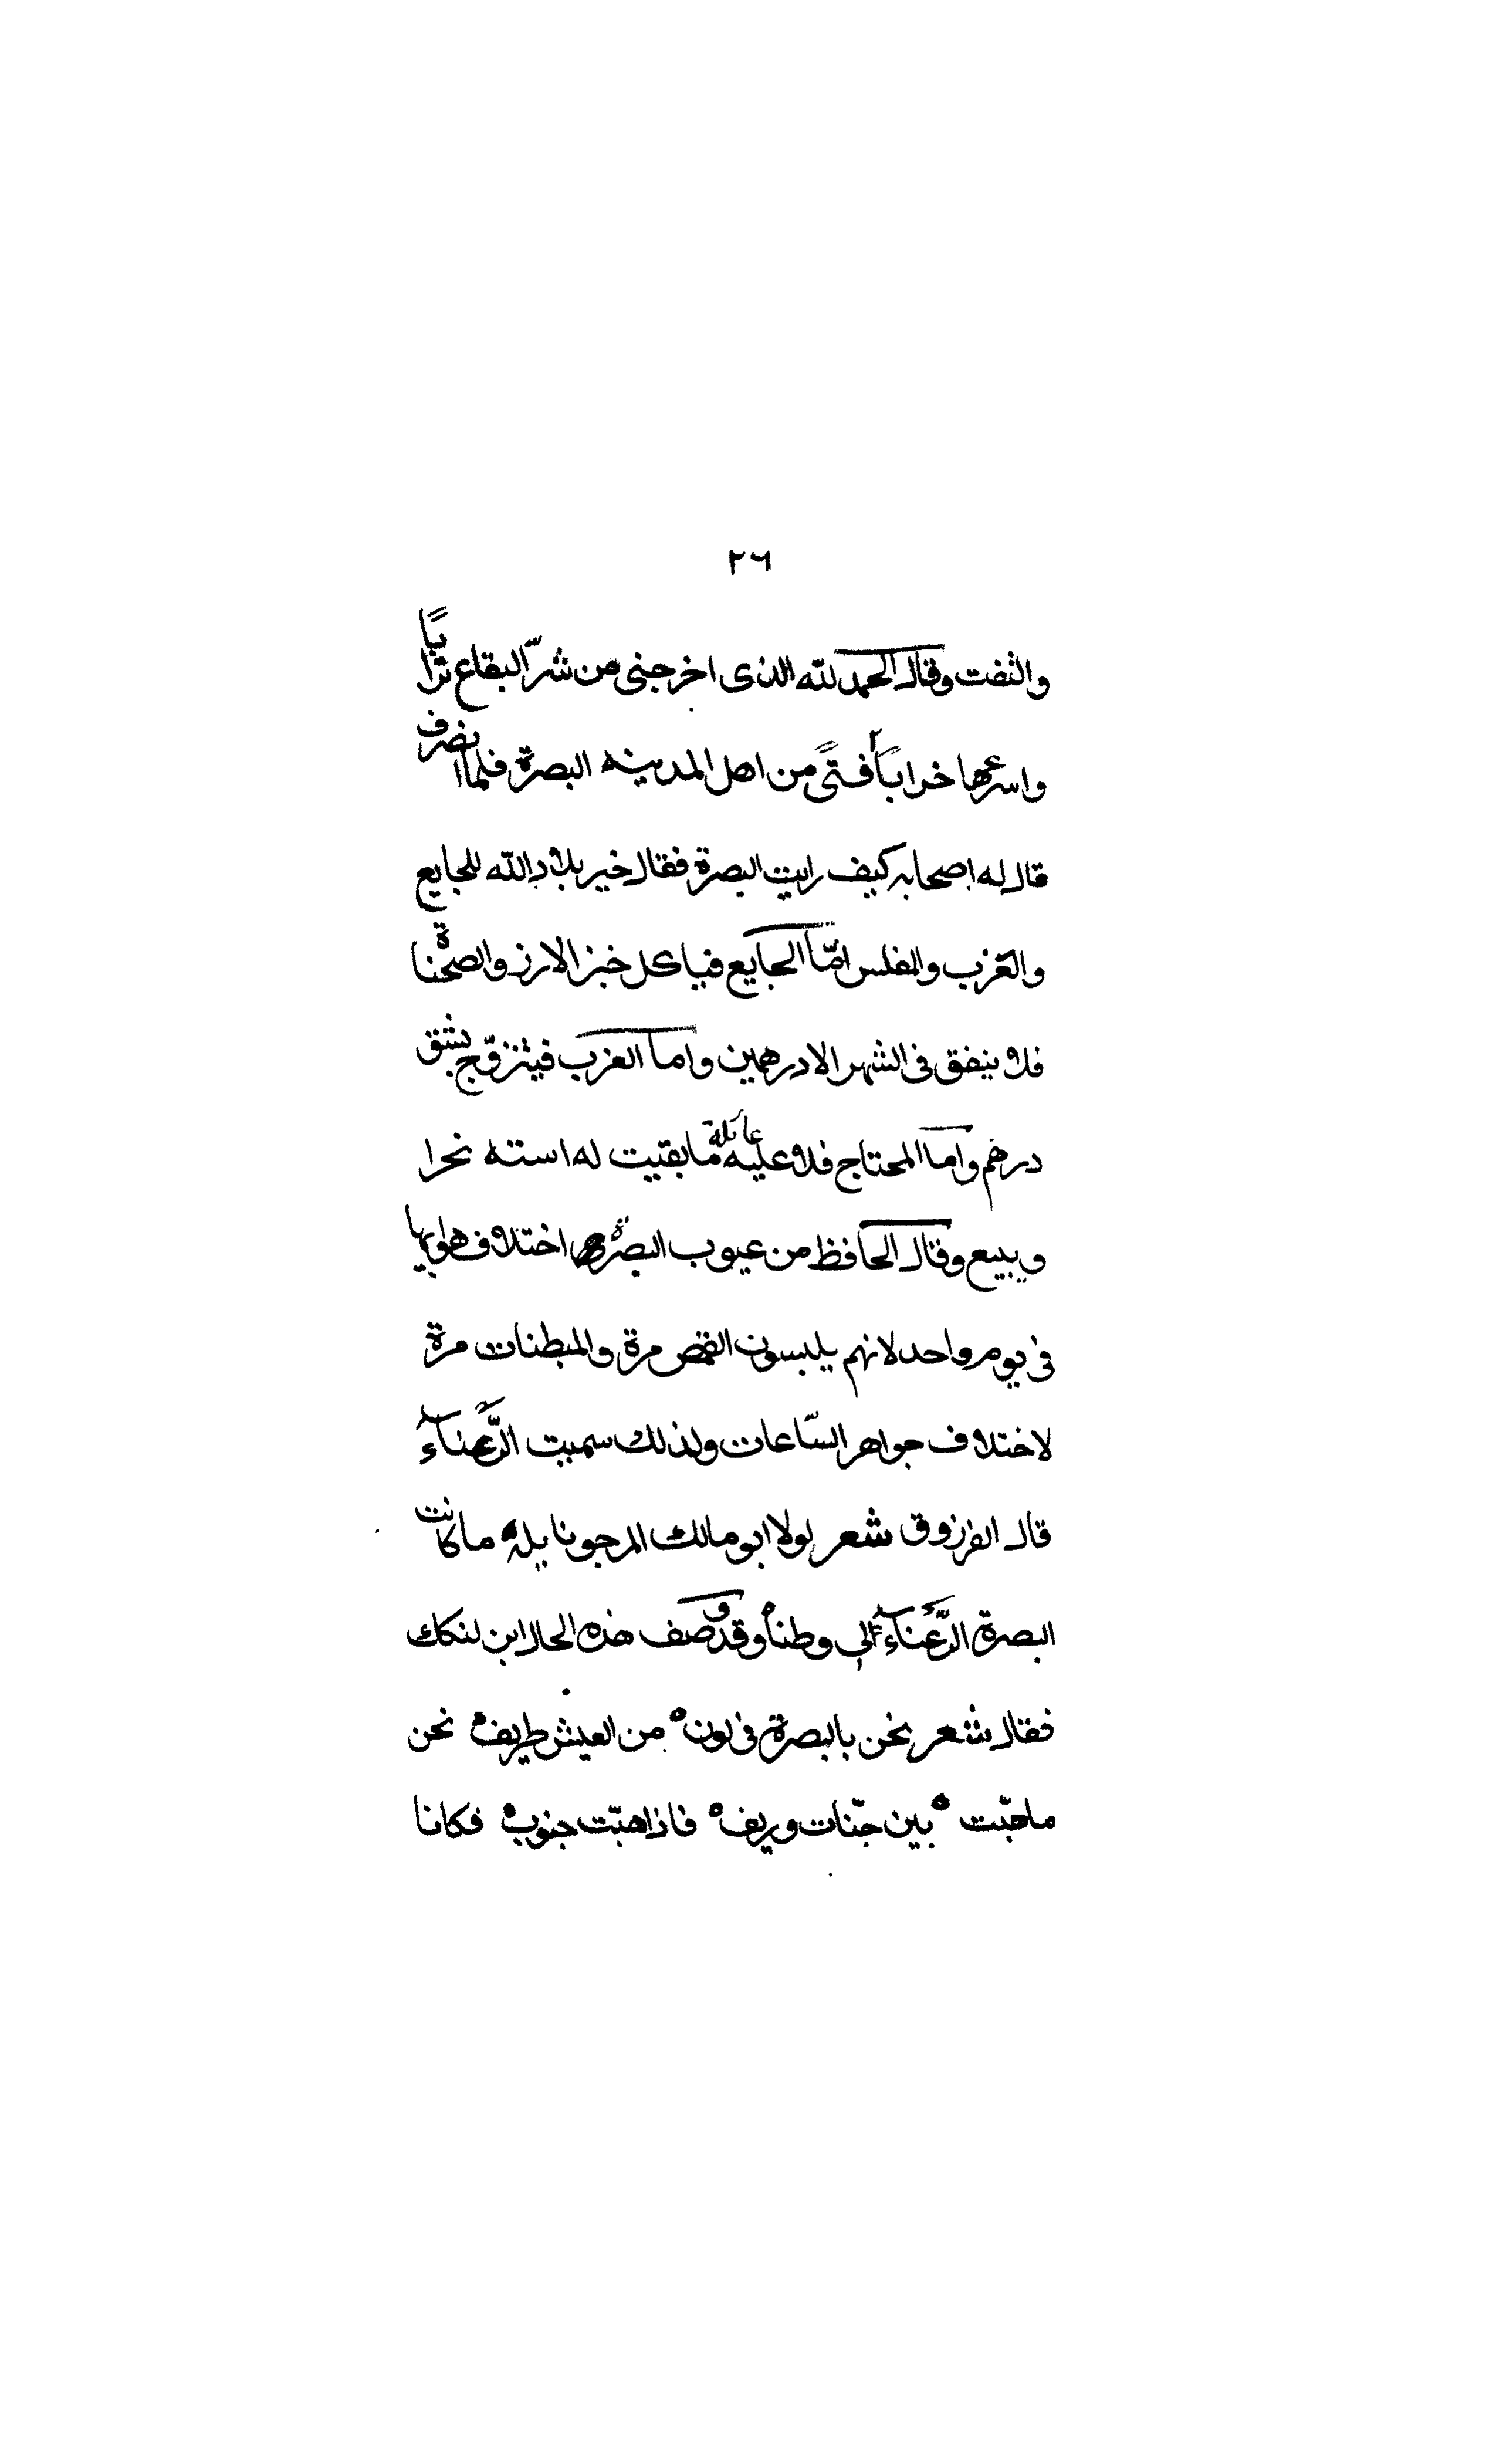 ٢٦
والتفت وقال الحمد لله الذى اخرجنى من شرّ البقاع ترابًا
واسرعها خرابًا فتًى من اهل المدينه البصرة فلما انصرف
قال له اصحابه كيف رايت البصرة فقال خير بلاد الله للجايع
والعَزب والمفلس امّا الجايع فياكل خبز الارز والصحناة
فلا ينفق فى الشهر الا درهمين واما العزب فيتزوّج بشق
درهم واما المحتاج فلا عليه عائلة ما بقيت له استه نحرا
ويبيع وقال الحافظ من عيوب البصرة اختلاف هوايها
فى يوم واحد لانهم يلبسون القمص مرة والمبطنات مرة
لاختلاف جواهر السّاعات ولذلك سميت الرَّعناءَ
قال الفرزوق شعر لولا ابو مالك المرجو نايله ما كانت
البصرة الرَّعناءَ لى وطنا وقد وصف هذه الحال ابن لنكك
فقال شعر نحن بالبصرة فى لون من العيش طريف نحن
ما هبّت بين جنّات وريف فاذا هبّت جنوب فكانا